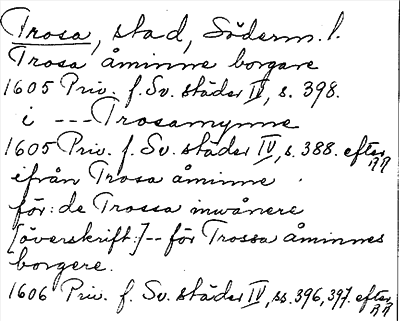 Trosa, stad, Söderm. l.
Trosa åminne borgare
1605 Priv. f. Sv. städer IV, s. 398.
i --- Trosamynne
1605 Priv. f. Sv. städer IV, s. 388. efter
ifrån Trosa åminne
för: de Trossa inwånere
[överskrift:] -- för Trossa åminnes
borgere.
1606 Priv. f. Sv. städer IV, ss. 396, 397. efter